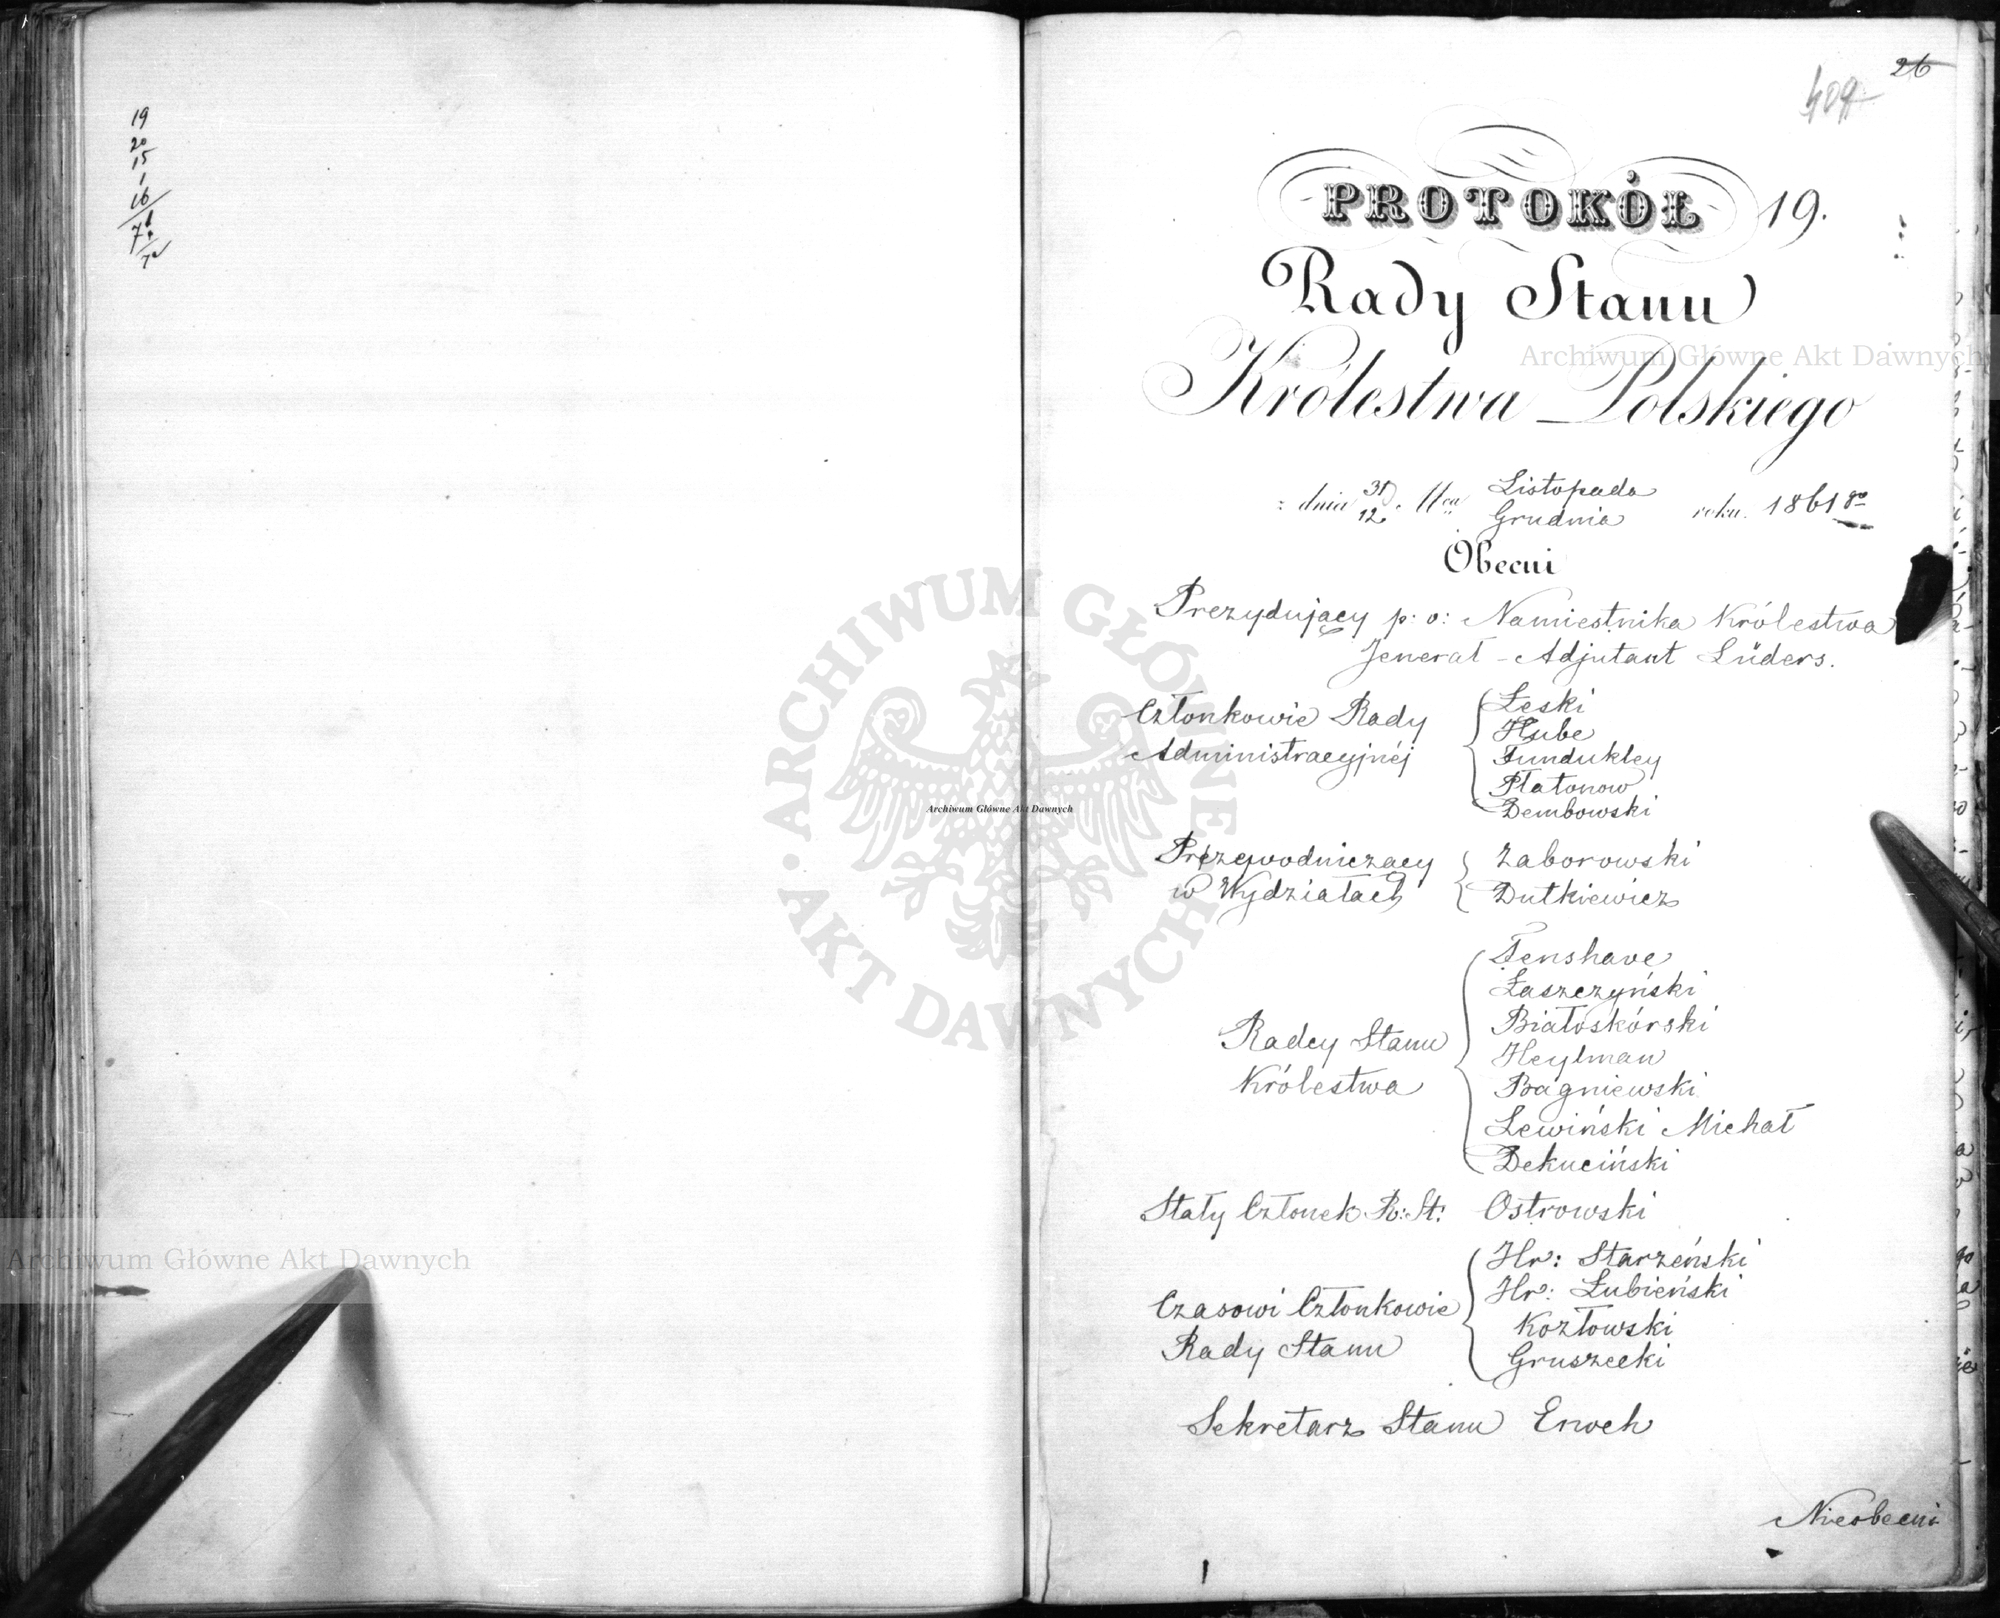 19
20
15
1
16
26
409
PROTOKÓŁ 19.
Rady Stanu
Królestwa Polskiego
dnia 31/12 Mca Listopada/Grudnia roku 1861go
Obecni
Prezydujący p: o: Namiestnika Królestwa
Jenerał-Adjutant Lüders.
Członkowie Rady Administracyjnéj
Łęski
Hube
Fundukley
Płatonow
Dembowski
Przewodniczący w Wydziałach
Zaborowski
Dutkiewicz
Radcy Stanu Królestwa
Fenshave
Łaszczyński
Białoskórski
Heylman
Bagniewski
Lewiński Michał
Dekuciński
Stały Członek R: St: Ostrowski
Czasowi Członkowie Rady Stanu
Hr: Starzeński
Hr: Łubieński
Kozłowski
Gruszecki
Sekretarz Stanu Enoch
Nieobecni
Archiwum Główne Akt Dawnych
Archiwum Główne Akt Dawnych
Archiwum Główne Akt Dawnych
ARCHIWUM GŁÓWNE AKT DAWNYCH